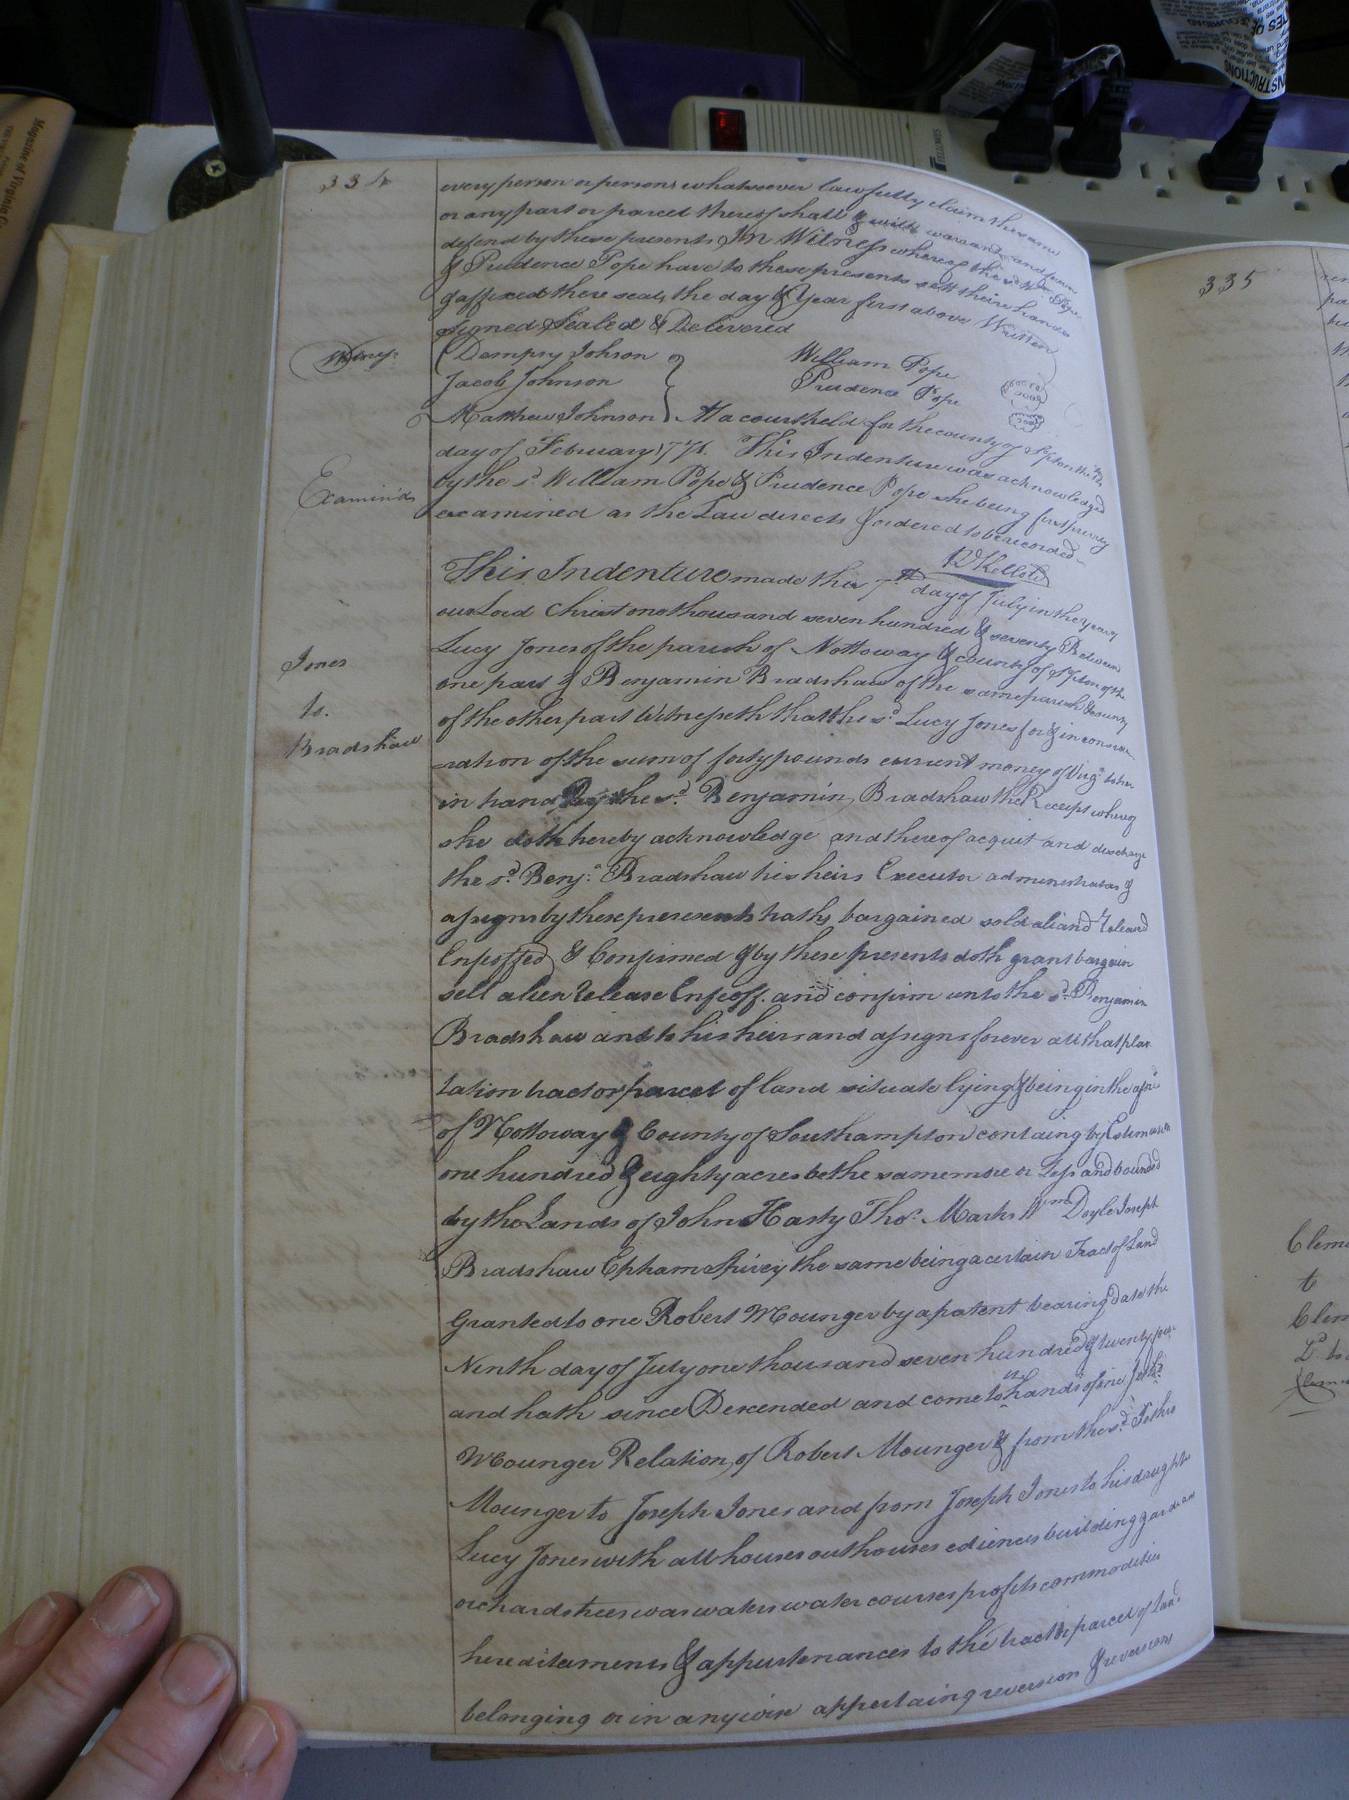 334
every person or persons whatsoever lawfully claim the same
or any part or parcel thereof shall & will warrant and forever
defend by these presents In Witness whereof the sd Wm Pope
& Prudence Pope have to these presents sett their hands
& affixed there seals the day & Year first above Written
Signed Sealed & Delivered
Dempsy Johson
William Pope
Jacob Johnson
Prudence Pope
Matthew Johnson
At a court held for the county of
day of February 177 This Indenture was acknowledged
by the sd William Pope & Prudence Pope she being first privily
Examin'd
examined as the Law directs & ordered to be recorded
This Indenture made the 7th day of July in the year
our Lord Christ one thousand seven hundred & seventy Between
Lucy Jones of the parish of Nottoway & county of of the
Jones
one part & Benjamin Bradshaw of the same parish & county
to
of the other part Witnesseth that the sd Lucy Jones for & in conside
Bradshaw
ration of the sum of forty pounds current money of Virga to her
in hand By the sd Benjamin Bradshaw the Receipt whereof
she doth hereby acknowledge and thereof acquit and discharge
the sd Benj: Bradshaw his heirs Executor administrators &
assigns by these presents hath bargained sold aliand Releasd
Enfeoffed & Confirmed & by these presents doth grant bargain
sell alien Release Enfeoff and confirm unto the sd Benjamin
Bradshaw and to his heirs and assigns forever all that plan
tation tract or parcel of land situate lying & being in the
of Nottoway & County of Southampton containg by Estimation
one hundred & eighty acres be the same more or less and bounded
by the Lands of John Hasty Thos. Marks Wm Doyle Joseph
Bradshaw Epham Spivey the same being a certain Tract of Land
Granted to one Robert Mounger by a patent bearing date the
Ninth day of July one thousand seven hundred & twenty
and hath since Decended and come to hands of one
Mounger Relation of Robert Mounger & from the sd Jethro
Mounger to Joseph Jones and from Joseph Jones to his daughter
Lucy Jones with all houses outhouses edicences building
orchards trees waters water courses profits commodities
hereditaments & appurtenances to the tract & parcel of land
belonging or in anywise appertaing reversion & reversions
335
Clem
to
Clem
FELLOWES
Magazine of Virginia
INSTRUCTIONS